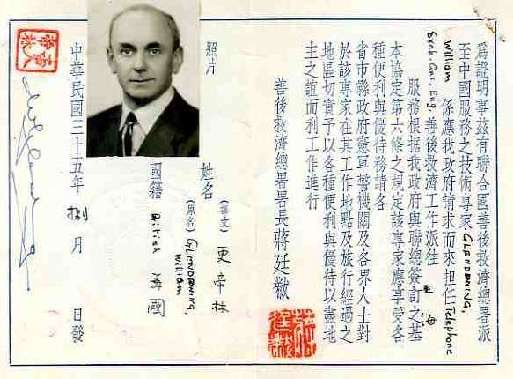 為證明事茲有聯合國善後救濟總署派
至中國服務之技術專家 GLENDENNING,
William 係應我政府請求而來担任 Telephone
善後救濟工作派往
服務根據我政府與聯總簽訂之基
本協定第六條之規定該專家應享受各
種便利與優待務請各
省市縣政府憲軍警機關及各界人士對
於該專家在其工作地點及旅行經過之
地區切實予以各種便利與優待以盡地
主之誼而利工作進行
善後救濟總署署長蔣廷黻
照片
姓名 (華文) 更帝林
(原名) GLENDENNING, William
國籍 British 英國
中華民國三十五年 捌 月 日發